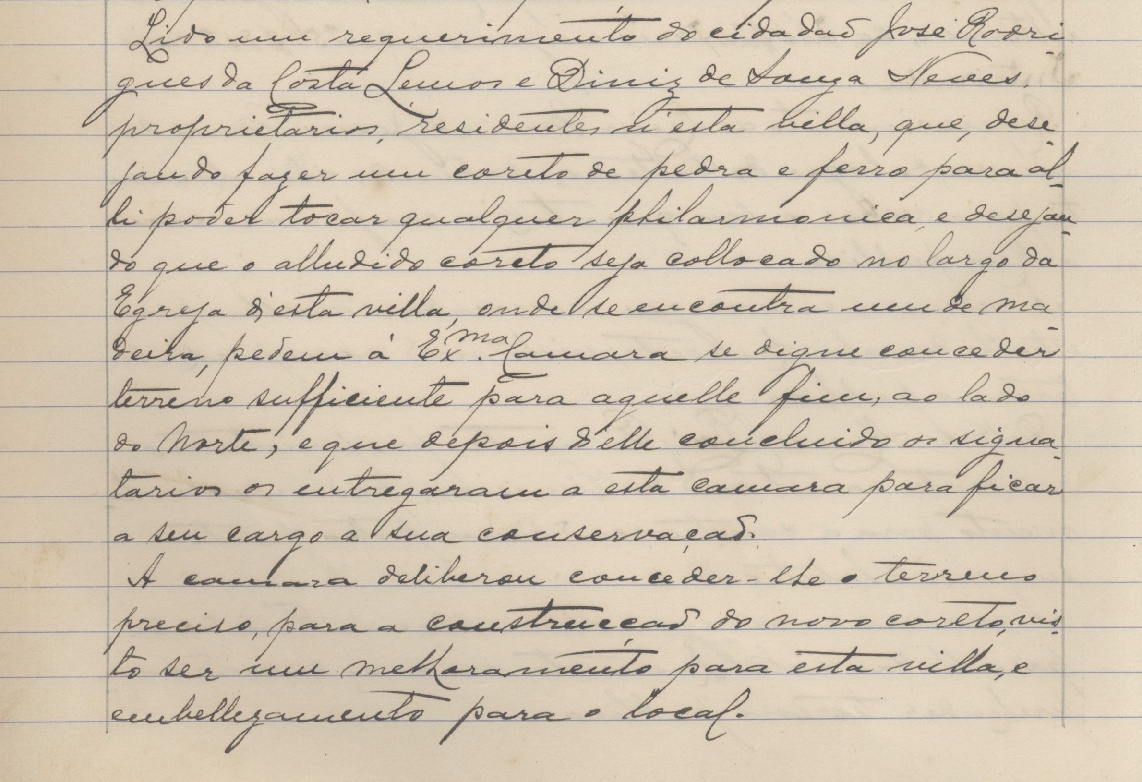 Lido um requerimento do cidadaõ José Rodri-
gues da Costa Lemos e Diniz de Souza Neves,
proprietarios, residentes n'esta villa, que, dese-
jando fazer um coreto de pedra e ferro para al-
li poder tocar qualquer philarmonica, e desejan-
do que o alludido coreto seja collocado no largo da
Egreja d'esta villa, onde se encontra um de ma-
deira, pedem á Exma. Camara se digne conceder
terreno sufficiente para aquelle fim, ao lado
do Norte; e que depois d'elle concluido os signa-
tarios os entregaram a esta camara para ficar
a seu cargo a sua conservaçaõ.
A camara deliberou conceder-lhe o terreno
preciso, para a construcçaõ do novo coreto, vis-
to ser um melhoramento para esta villa, e
embellezamento para o local.